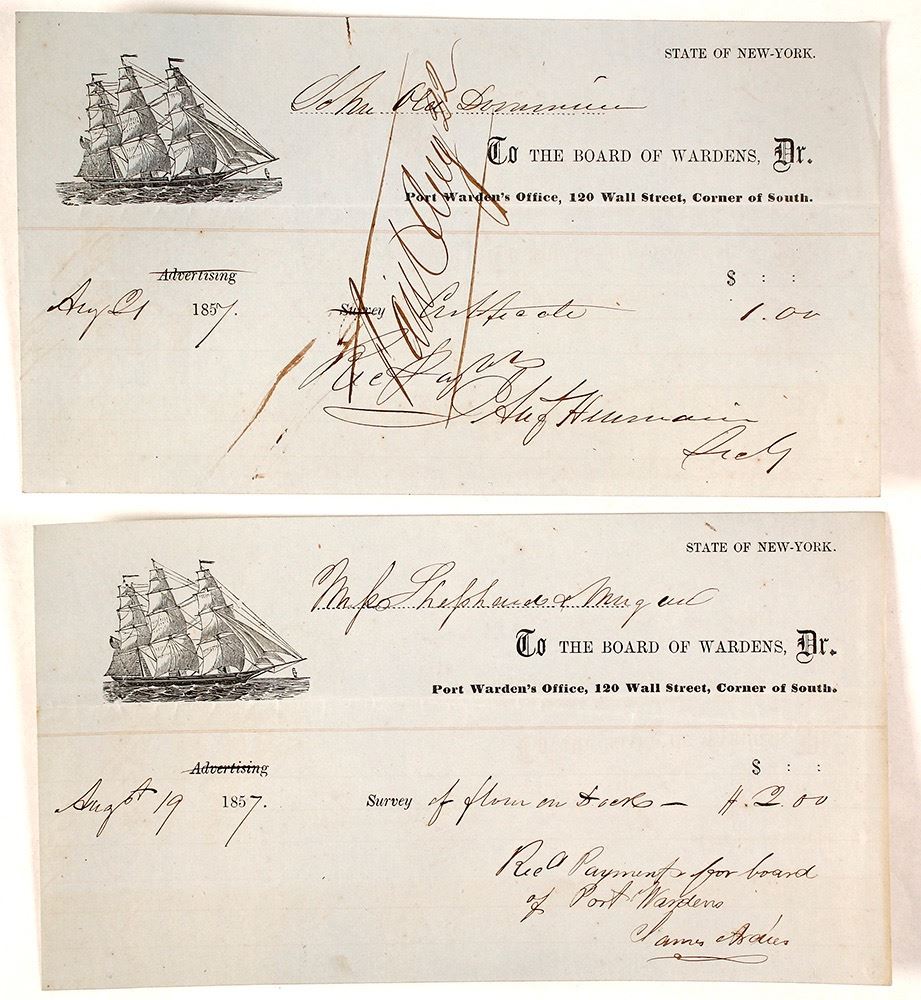 STATE OF NEW-YORK.
To THE BOARD OF WARDENS, Dr.
Port Warden's Office, 120 Wall Street, Corner of South.
Paid Aug 22
Advertising
$ : :
Aug 21 1857. Survey Certificate 1.00
Rec Paym
Secty
STATE OF NEW-YORK.
Mess Shephards &
To THE BOARD OF WARDENS, Dr.
Port Warden's Office, 120 Wall Street, Corner of South.
Advertising
$ : :
Augst 19 1857. Survey of flour on Docks — 2.00
Recd Payment for board
of Port Wardens
James